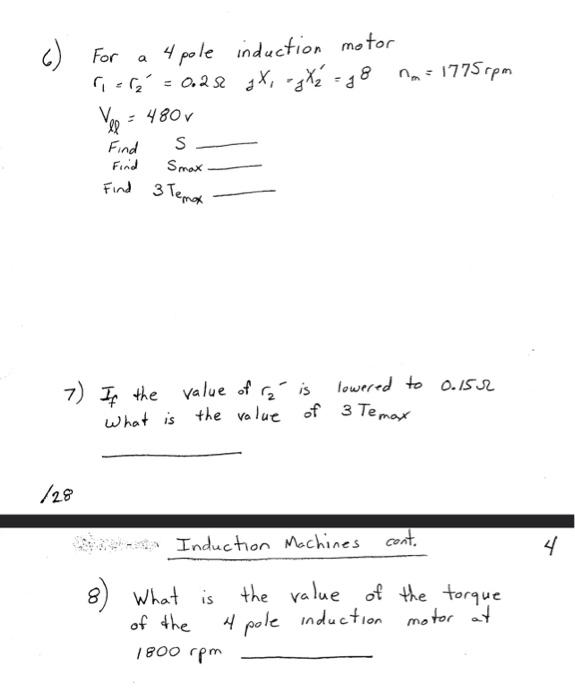 6) For a 4 pole induction motor
r₁ = r₂′ = 0.2Ω jX₁ = jX₂′ = j8 nₘ = 1775rpm
Vll = 480v
Find S ____
Find Smax ____
Find 3Temax ____
7) If the value of r₂′ is lowered to 0.15Ω
What is the value of 3Temax
____
/28
Induction Machines cont. 4
8) What is the value of the torque
of the 4 pole induction motor at
1800 rpm ____